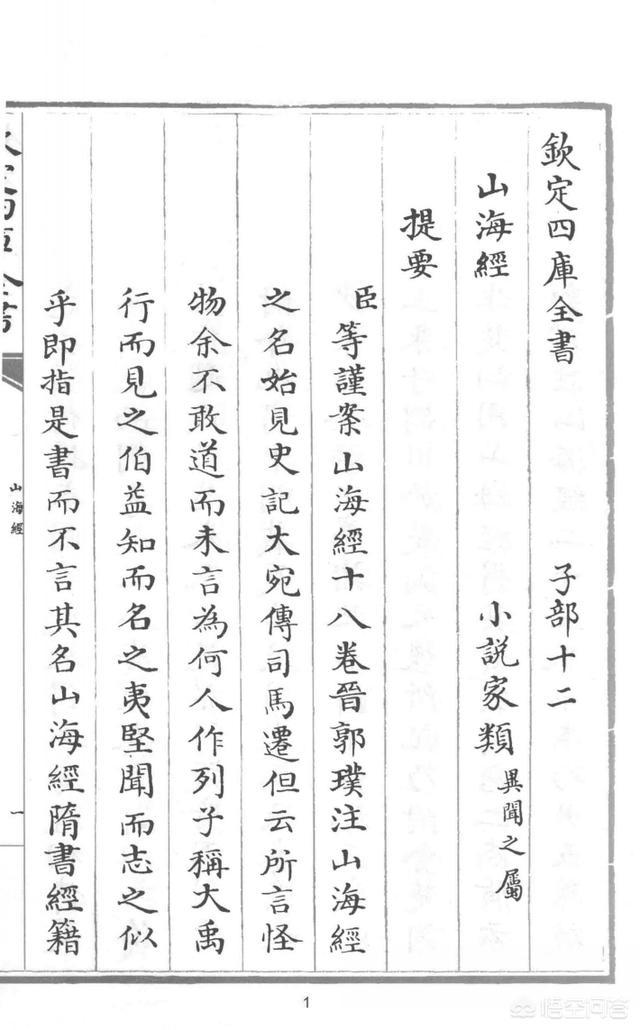 欽定四庫全書 子部十二
山海經 小説家類 異聞之屬
提要
臣等謹案山海經十八卷晉郭璞注山海經
之名始見史記大宛傳司馬遷但云所言怪
物余不敢道而未言為何人作列子稱大禹
行而見之伯益知而名之夷堅聞而志之似
乎即指是書而不言其名山海經隋書經籍
山海經
一
1
悟空问答